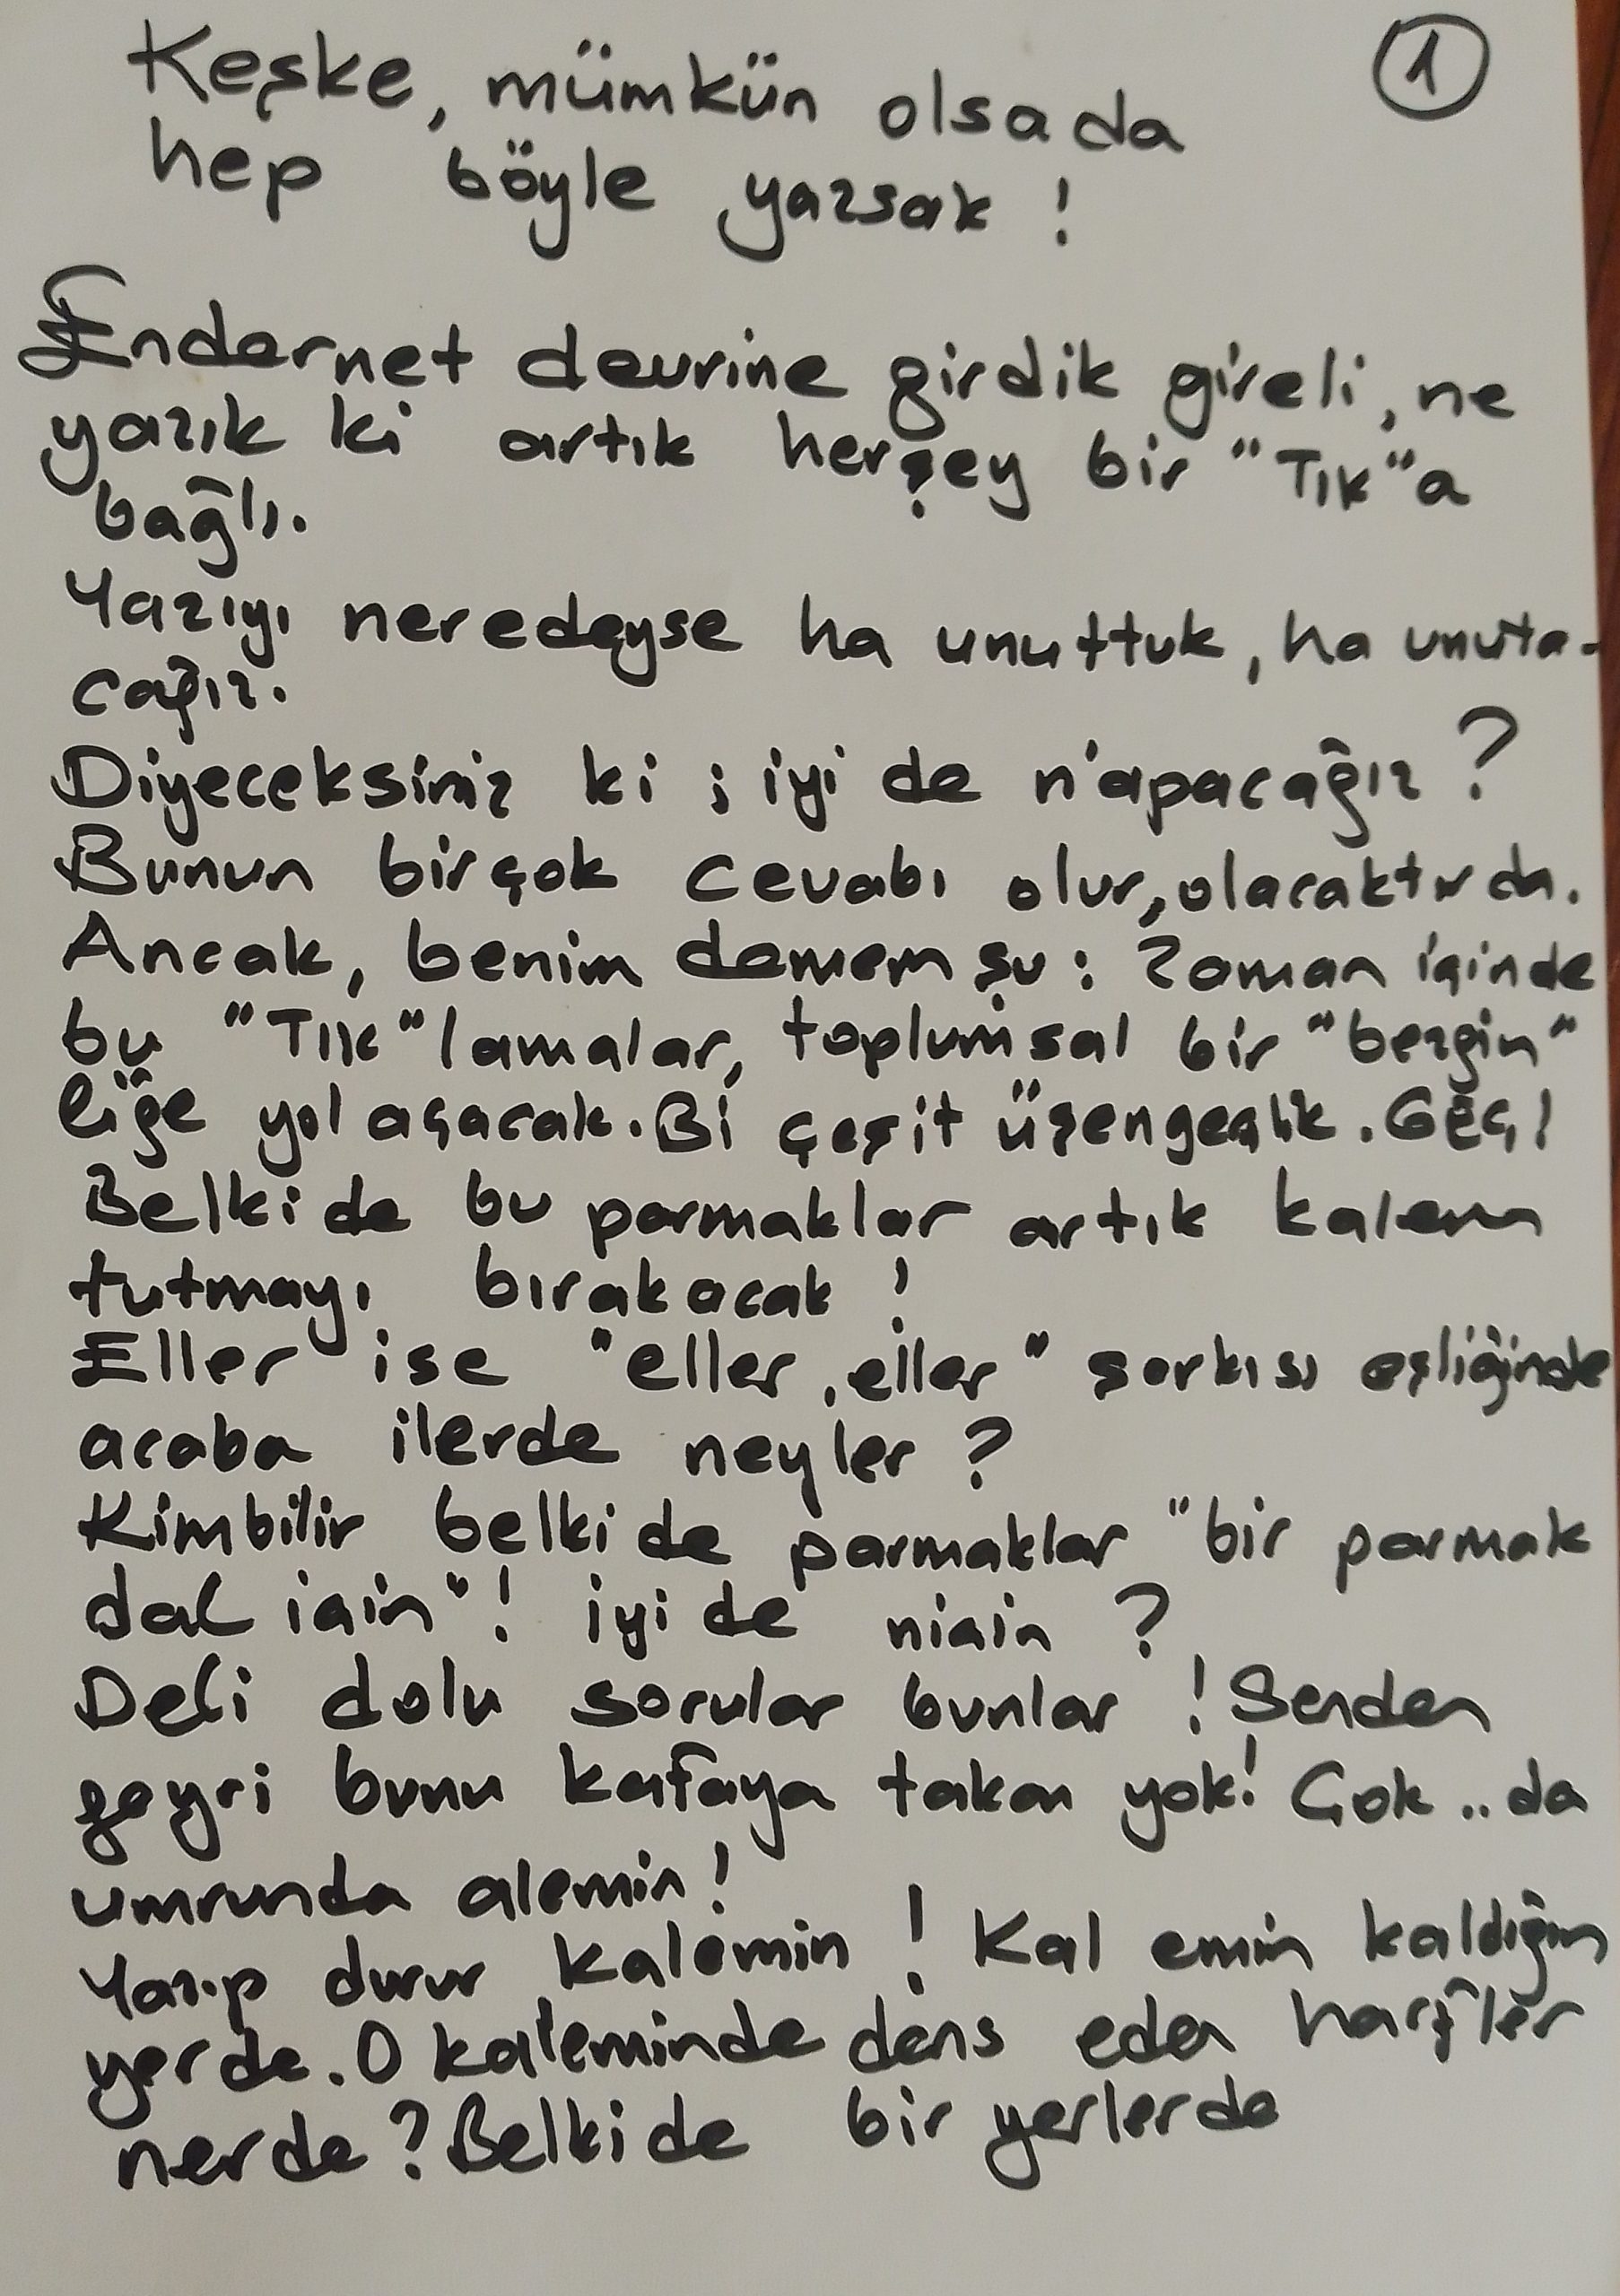 ①
Keşke, mümkün olsada
hep böyle yazsak !
Endernet devrine girdik gireli, ne
yazık ki artık herşey bir "Tık"a
bağlı.
Yazıyı neredeyse ha unuttuk, ha unuta-
cağız.
Diyeceksiniz ki ; iyi de n'apacağız ?
Bunun birçok cevabı olur, olacaktır da.
Ancak, benim demem şu : Zaman içinde
bu "Tık"lamalar, toplumsal bir "bezgin"
liğe yol açacak. Bi çeşit üşengeçlik. Geç !
Belki de bu parmaklar artık kalem
tutmayı bırakacak !
Eller ise "eller, eller" şarkısı eşliğinde
acaba ilerde neyler ?
Kimbilir belki de parmaklar "bir parmak
dal için" ! iyi de niçin ?
Deli dolu sorular bunlar ! Senden
gayri bunu kafaya takan yok! Çok .. da
umrunda alemin !
Yazıp durur kalemin ! Kal emin kaldığın
yerde. O kaleminde dans eden harfler
nerde ? Belki de bir yerlerde